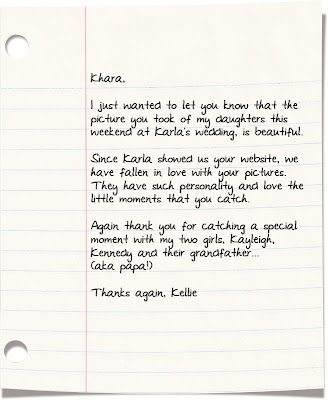 Khara,
I just wanted to let you know that the
picture you took of my daughters this
weekend at Karla's wedding, is beautiful.
Since Karla showed us your website, we
have fallen in love with your pictures.
They have such personality and love the
little moments that you catch.
Again thank you for catching a special
moment with my two girls, Kayleigh,
Kennedy and their grandfather...
(aka papa!)
Thanks again, Kellie